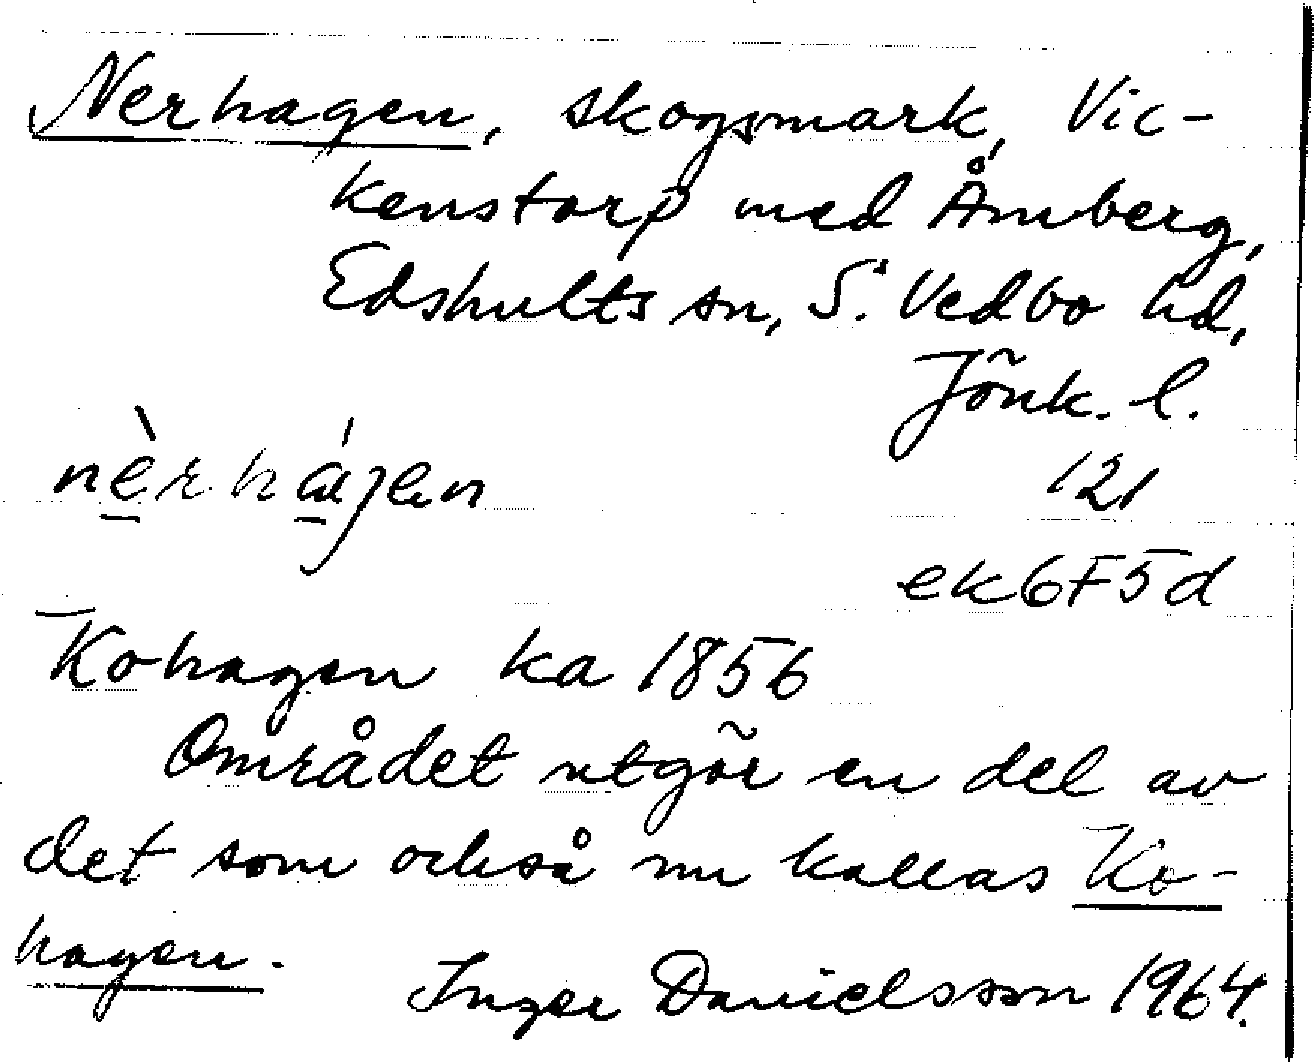 Nerhagen, skogsmark, Vic-
kenstorp med Åmberg,
Edshults sn, S. Vedbo hd,
Jönk. l.
nèrhágen
121
ek6F5d
Kohagen ka 1856
Området utgör en del av
det som också nu kallas Ko-
hagen.
Inger Danielsson 1964.